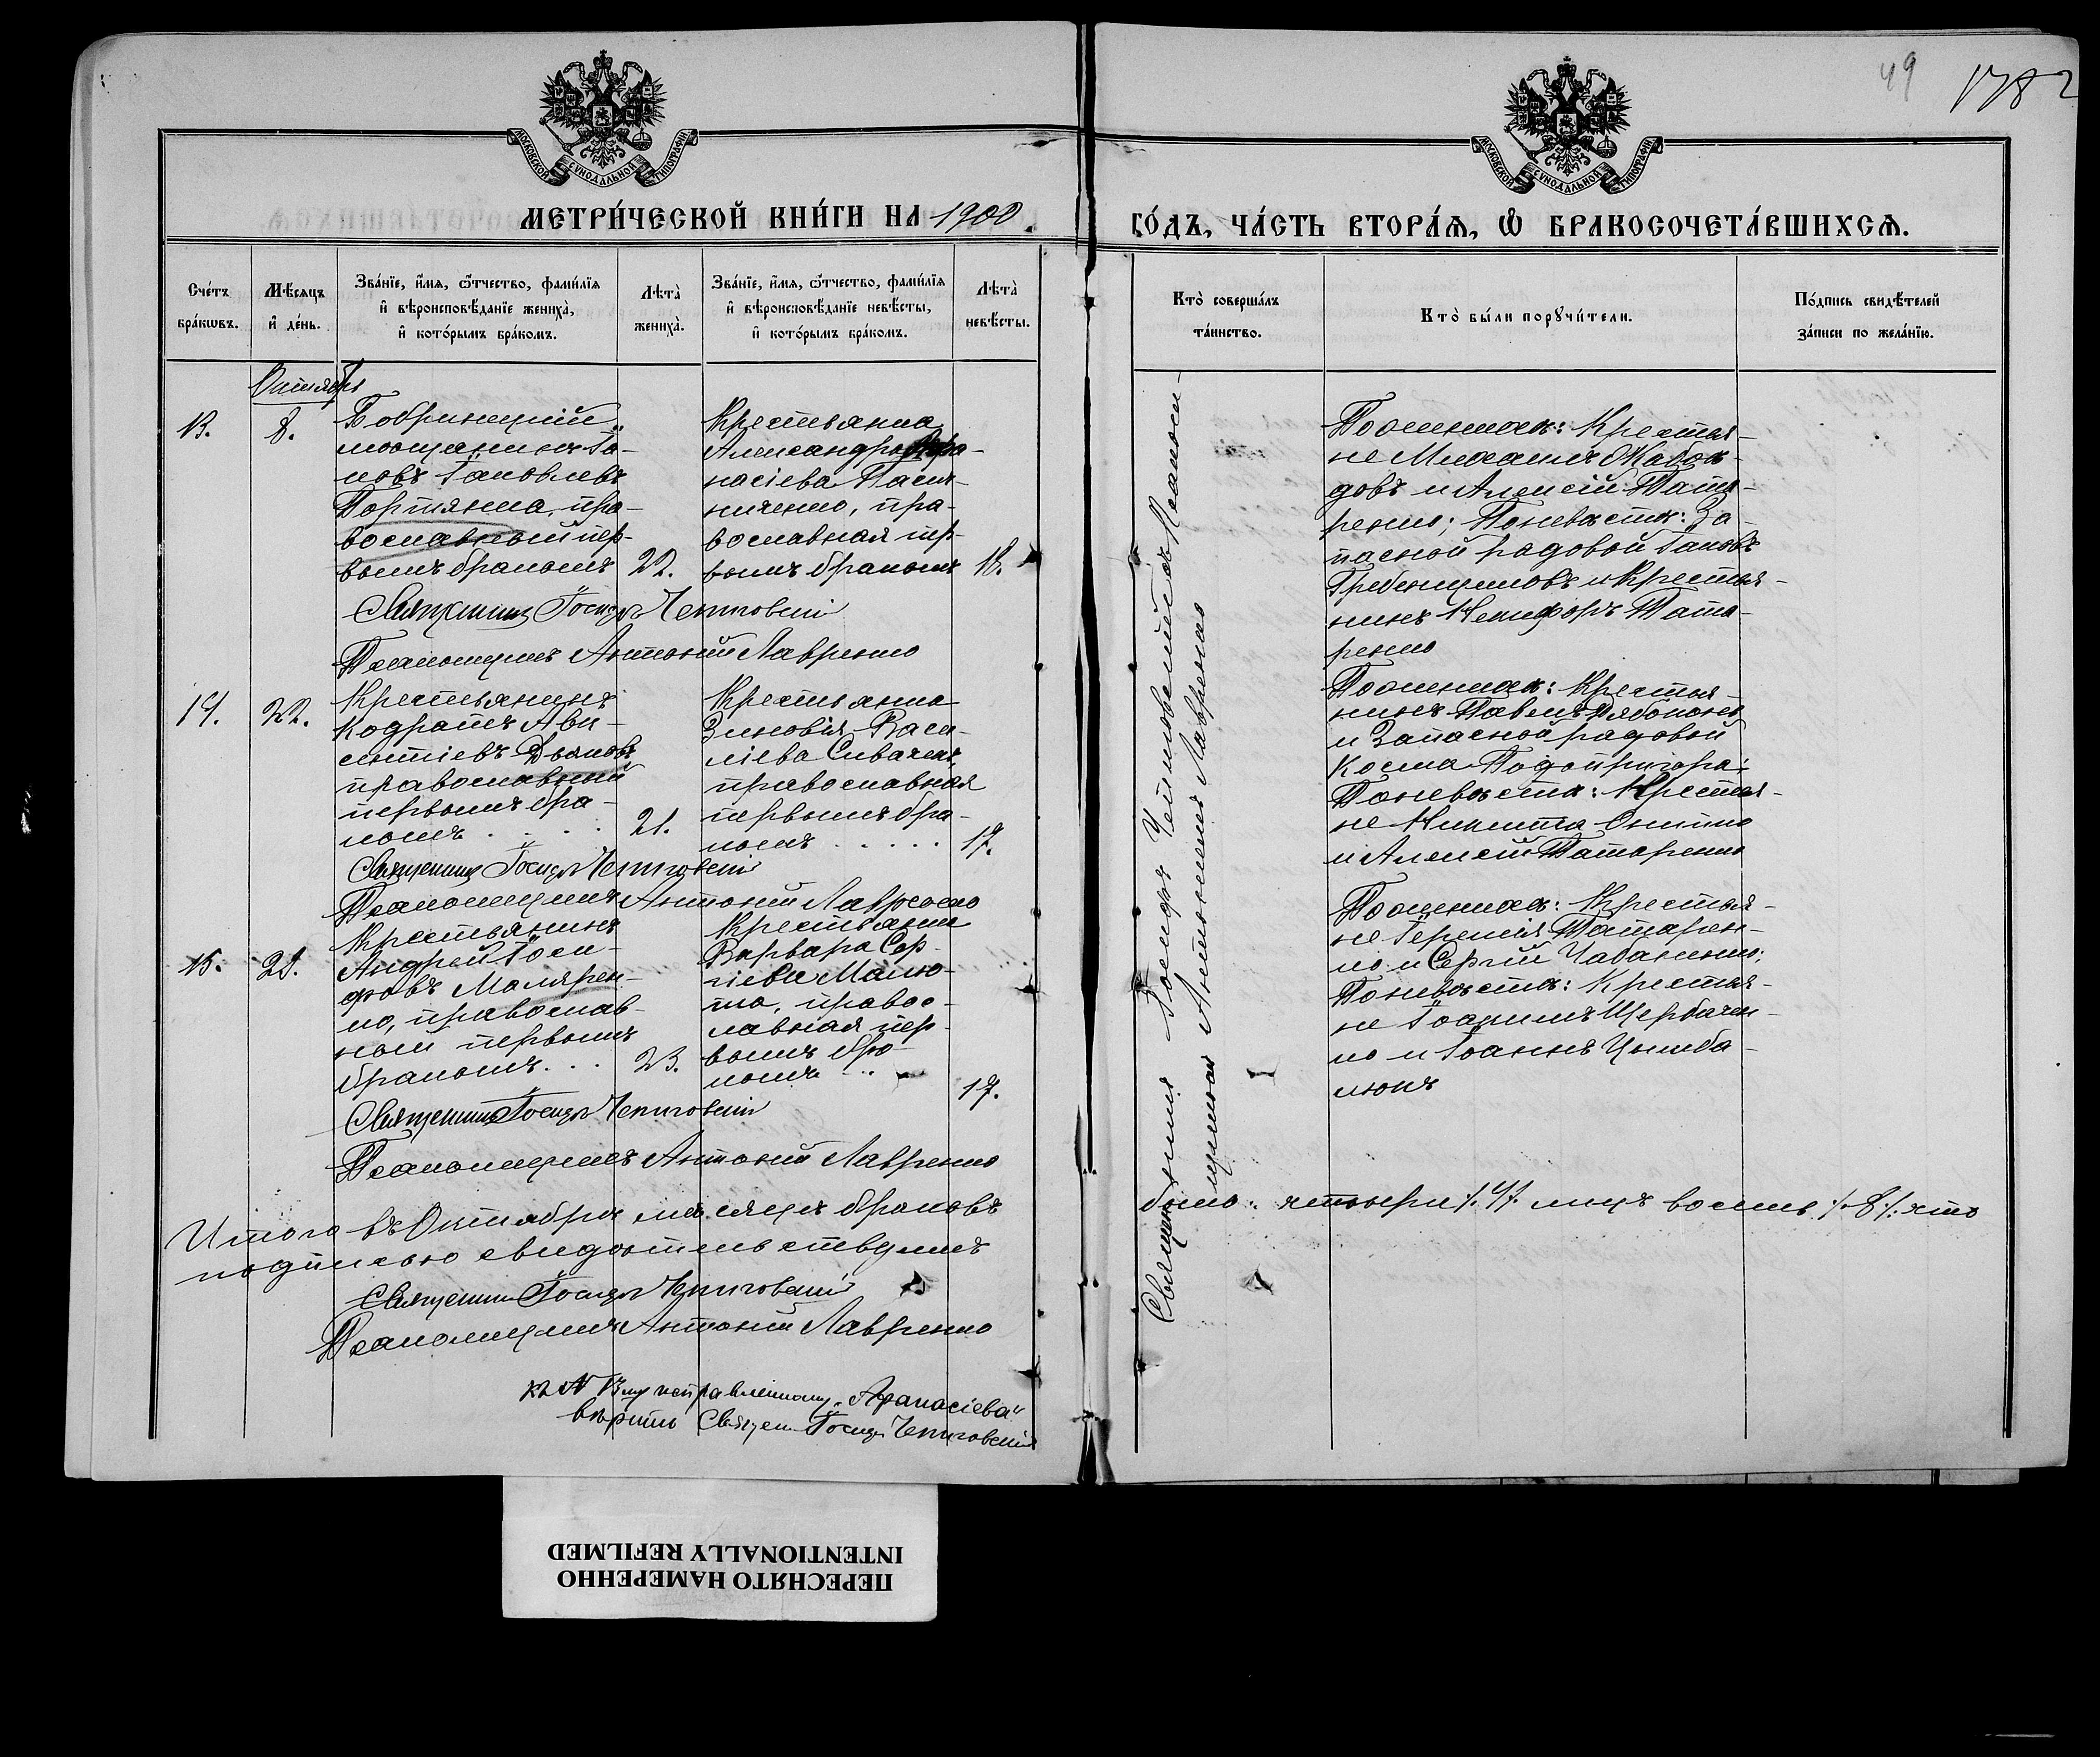 49
1782
МОСКОВСКОЙ СУНОДАЛЬНОЙ ТИПОГРАФІИ
МОСКОВСКОЙ СУНОДАЛЬНОЙ ТИПОГРАФІИ
МЕТРИ́ЧЕСКОЙ КНИ́ГИ НА 1900
ГО́ДЪ, ЧА́СТЬ ВТОРА́Ѧ, Ѡ БРАКОСОЧЕТА́ВШИХСѦ.
Сче́тъ
бра́кωвъ.
Мѣ́сяцъ
и де́нь.
Зва́нїе, и́мя, ѻ́тчество, фами́лїя
и вѣроисповѣ́данїе жениха̀,
и кото́рымъ бра́комъ.
Лѣта̀
жениха̀.
Зва́нїе, и́мя, ѻ́тчество, фами́лїя
и вѣроисповѣ́данїе невѣ́сты,
и кото́рымъ бра́комъ.
Лѣта̀
невѣ́сты.
Кто̀ соверша́лъ
та́инство.
Кто̀ бы́ли порꙋчи́тели.
По́дпись свидѣ́телей
за́писи по жела́нїю.
Октябрь
13.
8.
Бобринецкій
мѣщанинъ Іа-
ковъ Іаковлевъ
Портянка, пра-
вославный пер-
вымъ бракомъ
22.
Крестьянка
Александра Афа-
насіева Пасич-
ниченко, пра-
вославная пер-
вымъ бракомъ
18.
Священникъ Іосифъ Чепиговскій
Псаломщикъ Антоній Лавренко
14.
22.
Крестьянинъ
Кодратъ Ави-
ентіевъ Дьяковъ
православный
первымъ бра-
комъ . . . .
21.
Крестьянка
Зиновія Васи-
ліева Сиваченк.
православная
первымъ бра-
комъ . . . . .
17.
Священникъ Іосифъ Чепиговскій
Псаломщикъ Антоній Лавренко
15.
28.
Крестьянинъ
Андрей Іоси-
фовъ Малярен-
ко, православ-
ный первымъ
бракомъ. . .
23.
Крестьянка
Варвара Сер-
гіева Малю-
та, правос-
лавная пер-
вымъ бра-
комъ . .
17.
Священникъ Іосифъ Чепиговскій
Псаломщикъ Антоній Лавренко
Итого въ Октябрѣ мѣсяцѣ браковъ
было: четыре /:4:/ лицъ восемь /:8:/ что
подписью свидѣтельствуемъ
Священникъ Іосифъ Чепиговскій
Псаломщикъ Антоній Лавренко
къ № 13му исправленному „Афанасіева“
вѣрить Священ. Іосифъ Чепиговскій
Священникъ Іосифъ Чепиговскій съ Псаломщи-
щикомъ Антоніемъ Лавренко
По женихѣ: Крестья-
не Михаилъ Жабок-
довъ и Алексій Тата-
ренко; По невѣстѣ: За-
пасной рядовой Іаковъ
Гребенщиковъ и Крестья-
нинъ Никифоръ Тата-
ренко
По женихѣ: Крестья-
нинъ Павелъ Рябоконь
и Запасной рядовой
Косма Подопригора;
По невѣстѣ: Крестья-
не Никита Онипко
и Алексій Татаренко
По женихѣ: Крестья-
не Іеремія Татарен-
ко и Сергій Чабаненко;
По невѣстѣ: Крестья-
не Іоакимъ Щербачен-
ко и Іоаннъ Цымба-
люкъ
ПЕРЕСНЯТО НАМЕРЕННО
INTENTIONALLY REFILMED